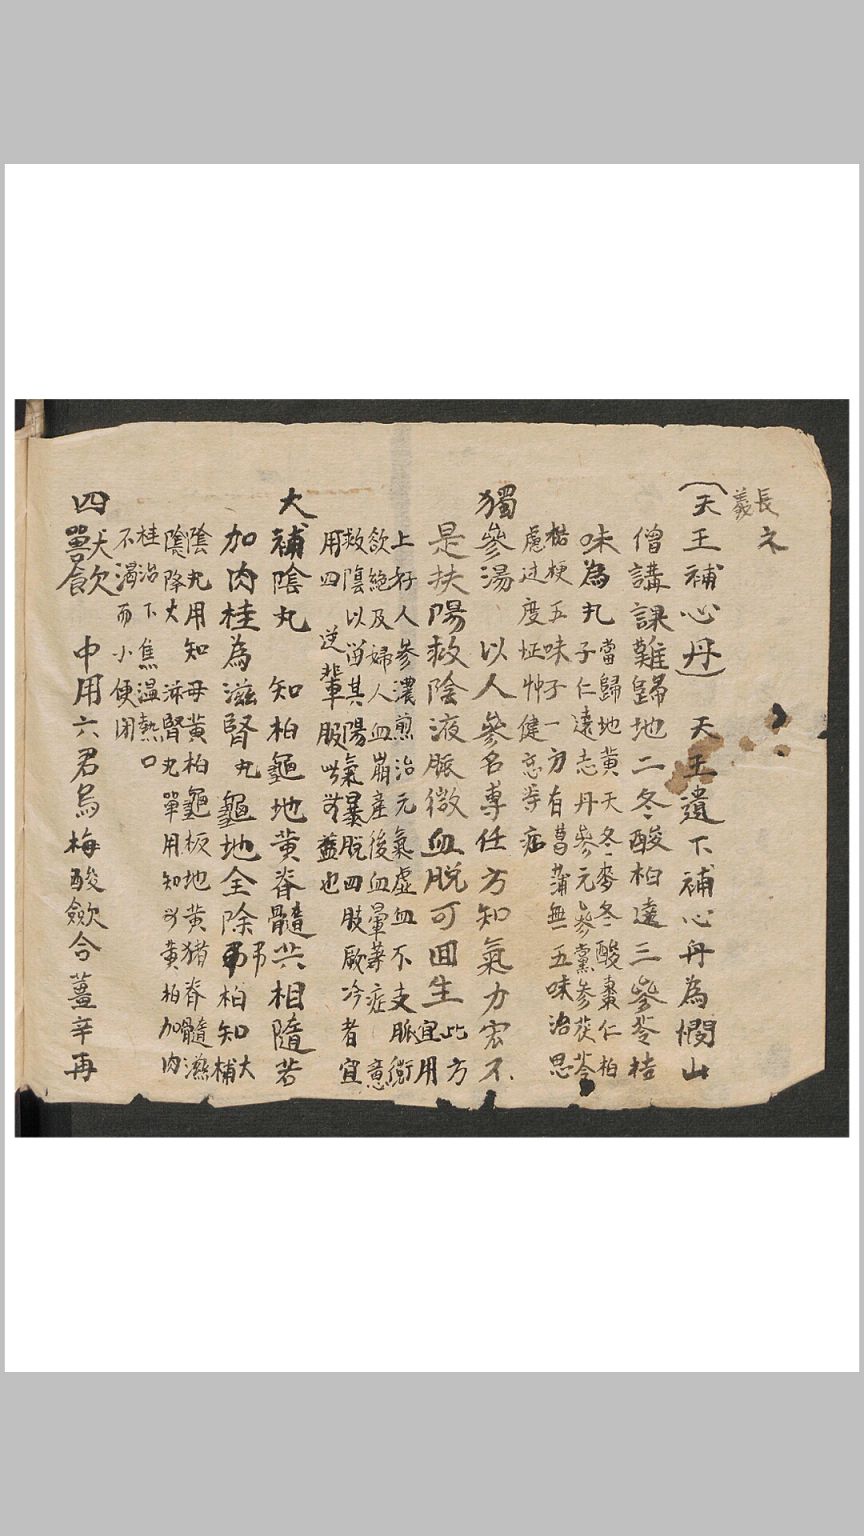 長
義
(天王補心丹) 天王遺下補心丹為憫山
僧講課難歸地二冬酸柏遠三參苓桔
味為丸
當歸地黃天冬麥冬酸棗仁柏
子仁遠志丹參元參黨參茯苓
桔梗五味子一方有菖蒲無五味治思
慮过度怔忡健忘等症
獨參湯 以人參名專任方知氣力宏不
是扶陽救陰液脈微血脱可回生
此方
宜用
上好人參濃煎治元氣虛血不支脈衛
欲絕及婦人血崩產後血暈等症意
救陰以留其陽氣暴脱四肢厥冷者宜
用四逆輩服此無益也
大補陰丸 知柏龜地黃脊髓共相隨若
加肉桂為滋腎丸龜地全除柏知
大
補
陰丸用知母黃柏龜板地黃猪脊髓滋
陰降火 滋腎丸單用知母黃柏加肉
桂治下焦温熱口
不渴而小便閉
四獸飲 中用六君烏梅酸歛合薑辛再